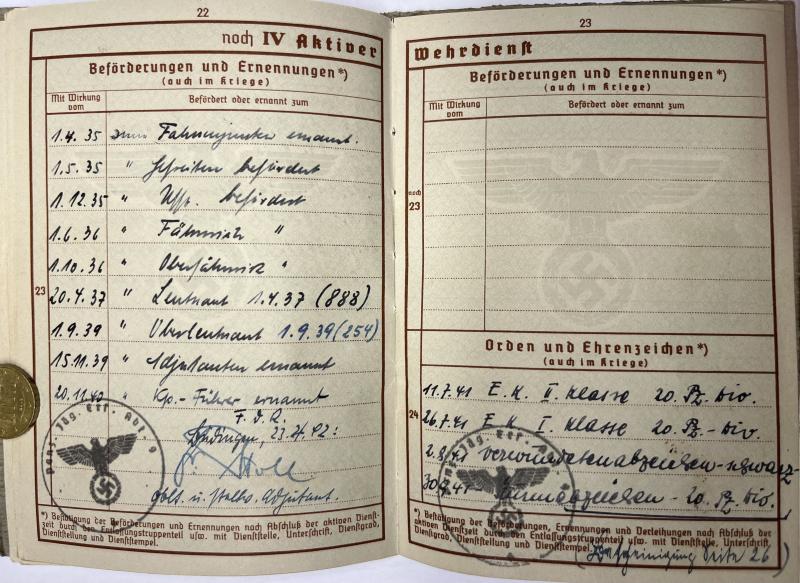 22
noch IV Aktiver
Beförderungen und Ernennungen*)
(auch im Kriege)
Mit Wirkung vom
Befördert oder ernannt zum
1.4.35 zum Fahnenjunker ernannt.
1.5.35 " Gefreiten befördert
1.12.35 " Uffz. befördert
1.6.36 " Fähnrich "
1.10.36 " Oberfähnrich "
23
20.4.37 " Leutnant 1.4.37 (888)
1.9.39 " Oberleutnant 1.9.39 (254)
15.11.39 " Adjutanten ernannt
20.11.40 " Kp.-Führer ernannt
F.d.R.
Oblt. u. Stellv. Adjutant.
Panz. Jäg. Ers. Abt. 9
*) Bestätigung der Beförderungen und Ernennungen nach Abschluß der aktiven Dienst-
zeit durch den Entlassungstruppenteil usw. mit Dienststelle, Unterschrift, Dienstgrad,
Dienststellung und Dienststempel.
23
Wehrdienst
Beförderungen und Ernennungen*)
(auch im Kriege)
Mit Wirkung vom
Befördert oder ernannt zum
noch
23
Orden und Ehrenzeichen*)
(auch im Kriege)
11.7.41 E.K. II. Klasse 20. Pz. Div.
24
26.7.41 E.K. I. Klasse 20. Pz.-Div.
2.8.41 Verwundetenabzeichen-schwarz
Sturmabzeichen - 20. Pz. Div.
*) Bestätigung der Beförderungen, Ernennungen und Verleihungen nach Abschluß der
aktiven Dienstzeit durch den Entlassungstruppenteil usw. mit Dienststelle, Unterschrift,
Dienstgrad, Dienststellung und Dienststempel.
(Bescheinigung Seite 26)